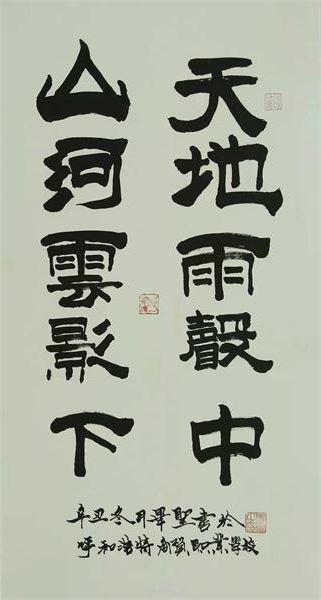 天地雨聲中
山河雲影下
辛丑冬月畢聖書於
呼和浩特商貿职業學校